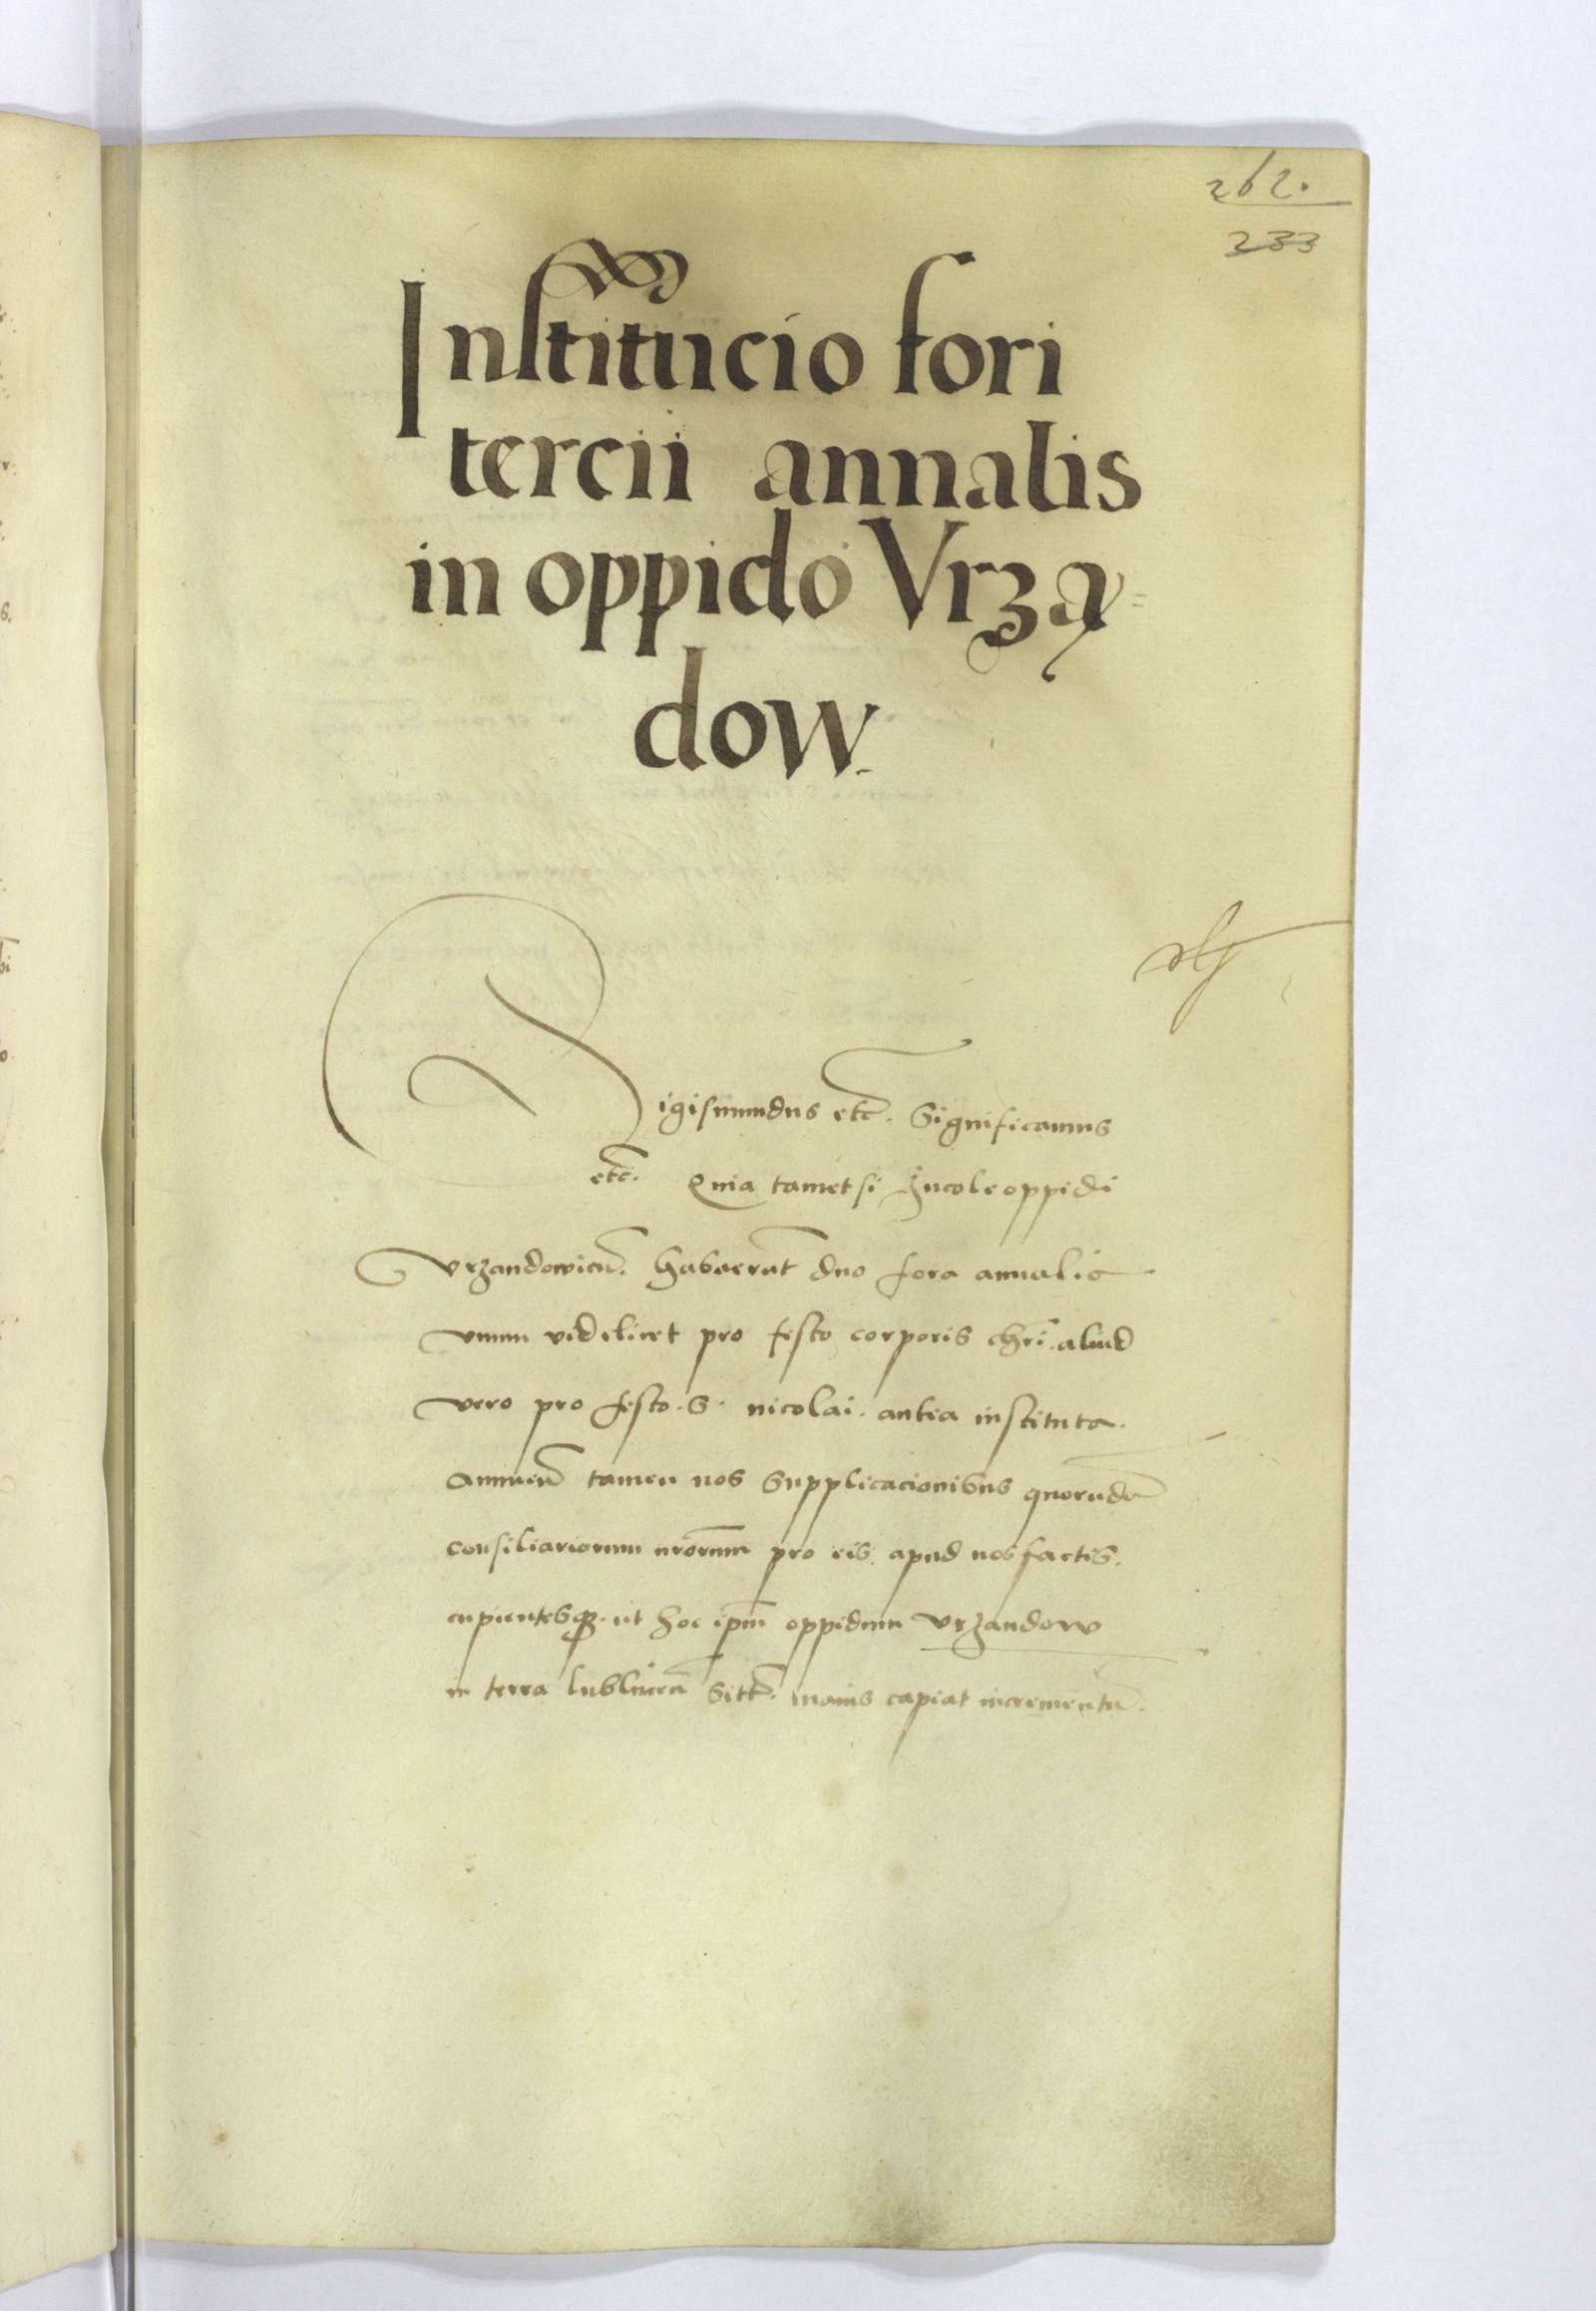 262.
233
Institucio fori
tercii annalis
in oppido Vrzą=
dow.
Sigismundus etc̃. Significamus
etc̃. Quia tametsi Incole oppidi
Vrzandowień. habuerũt duo fora annalia
vnum videlicet pro festo corporis chrī. aliud
vero pro festo. S. nicolai. antea instituta.
Annueñ tamen nos supplicacionibus quorũdã
consiliariorum nrõrum pro eis apud nos factis.
cupientesqꝫ. ut hoc ipm̃ oppidum Vrzandow
in terra lublineñ sitũ. maius capiat incrementũ.